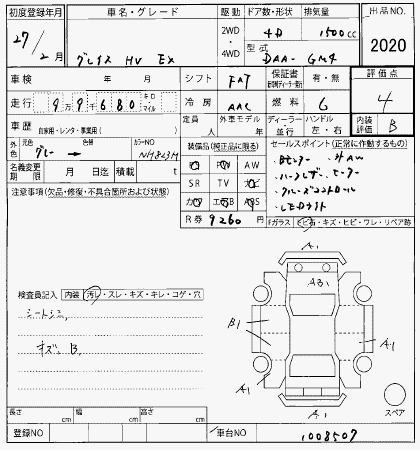 初度登録年月 車名・グレード 駆動 ドア数・形状 排気量 出品NO.
27/2月 グレイス HV EX 2WD・4WD 4D 1500cc 2020
型式 DAA-GM4
車検 年 月 シフト FAT 保証書 有・無 評価点
走行 9万9千680 キロ・マイル 冷房 AAC 燃料 G 4
車歴 自家用・レンタ・事業用( ) 定員 人 外車モデル 年 ディーラー 並行 ハンドル 左・右 内装評価 B
外色 元色 グレー 色替 カラーNO NH823M
装備品(純正品に限る) セールスポイント(正常に作動するもの)
名義変更期限 月 日迄 積載 t
PS PW AW
SR TV ナビ
カワ エアB ABS
R券 9260円
注意事項(欠品・修復・不具合箇所および状態)
・クルーズコントロール
・LEDライト
Fガラス ヒビ石・キズ・ヒビ・ワレ・リペア跡
A1
A3
検査員記入 内装 汚レ・スレ・キズ・キレ・コゲ・穴
シートシミ、
B1
A1
キズ、B、
A1
A1
A1
スペア
長さ cm 幅 cm 高さ cm
登録NO 車台NO 1008507